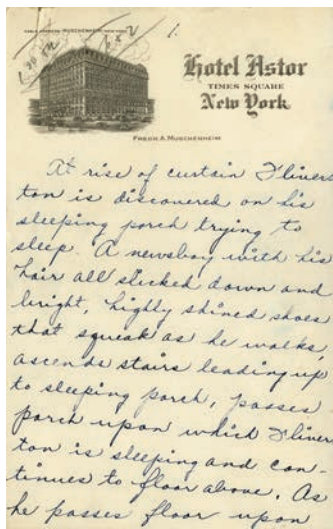 1.
1.30 PM
Hotel Astor
TIMES SQUARE
New York
FRED'K A. MUSCHENHEIM
At rise of curtain Fliver-
ton is discovered on his
sleeping porch trying to
sleep. A newsboy with his
hair all slicked down and
bright, highly shined shoes
that squeak as he walks,
ascends stairs leading up
to sleeping porch, passes
porch upon which Fliver
ton is sleeping and con-
tinues to floor above. As
he passes floor upon